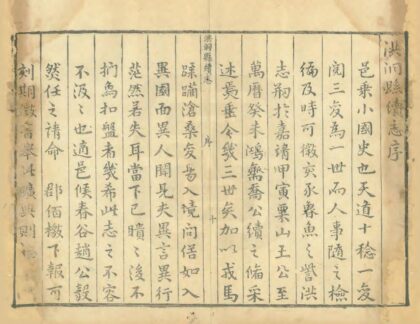 洪洞縣續志序
邑乘小國史也天道十稔一變
閱三變爲一世而人事隨之檢
編及時可徵亥豕魯魚之訾洪
志剏於嘉靖甲寅栗山王公至
萬曆癸未鴻喬公續之備采
述焉垂今幾三世矣加以戎馬
蹂躪滄桑變易入境問俗如入
異國而異人聞見失異言異行
茫然若失耳當下已瞶之後不
捫爲扣盤者幾希此志之不容
不汲汲也適邑侯春谷趙公毅
然任之請命郡伯檄下報可
刻期徵言舉此曠典則
洪洞縣續志
序